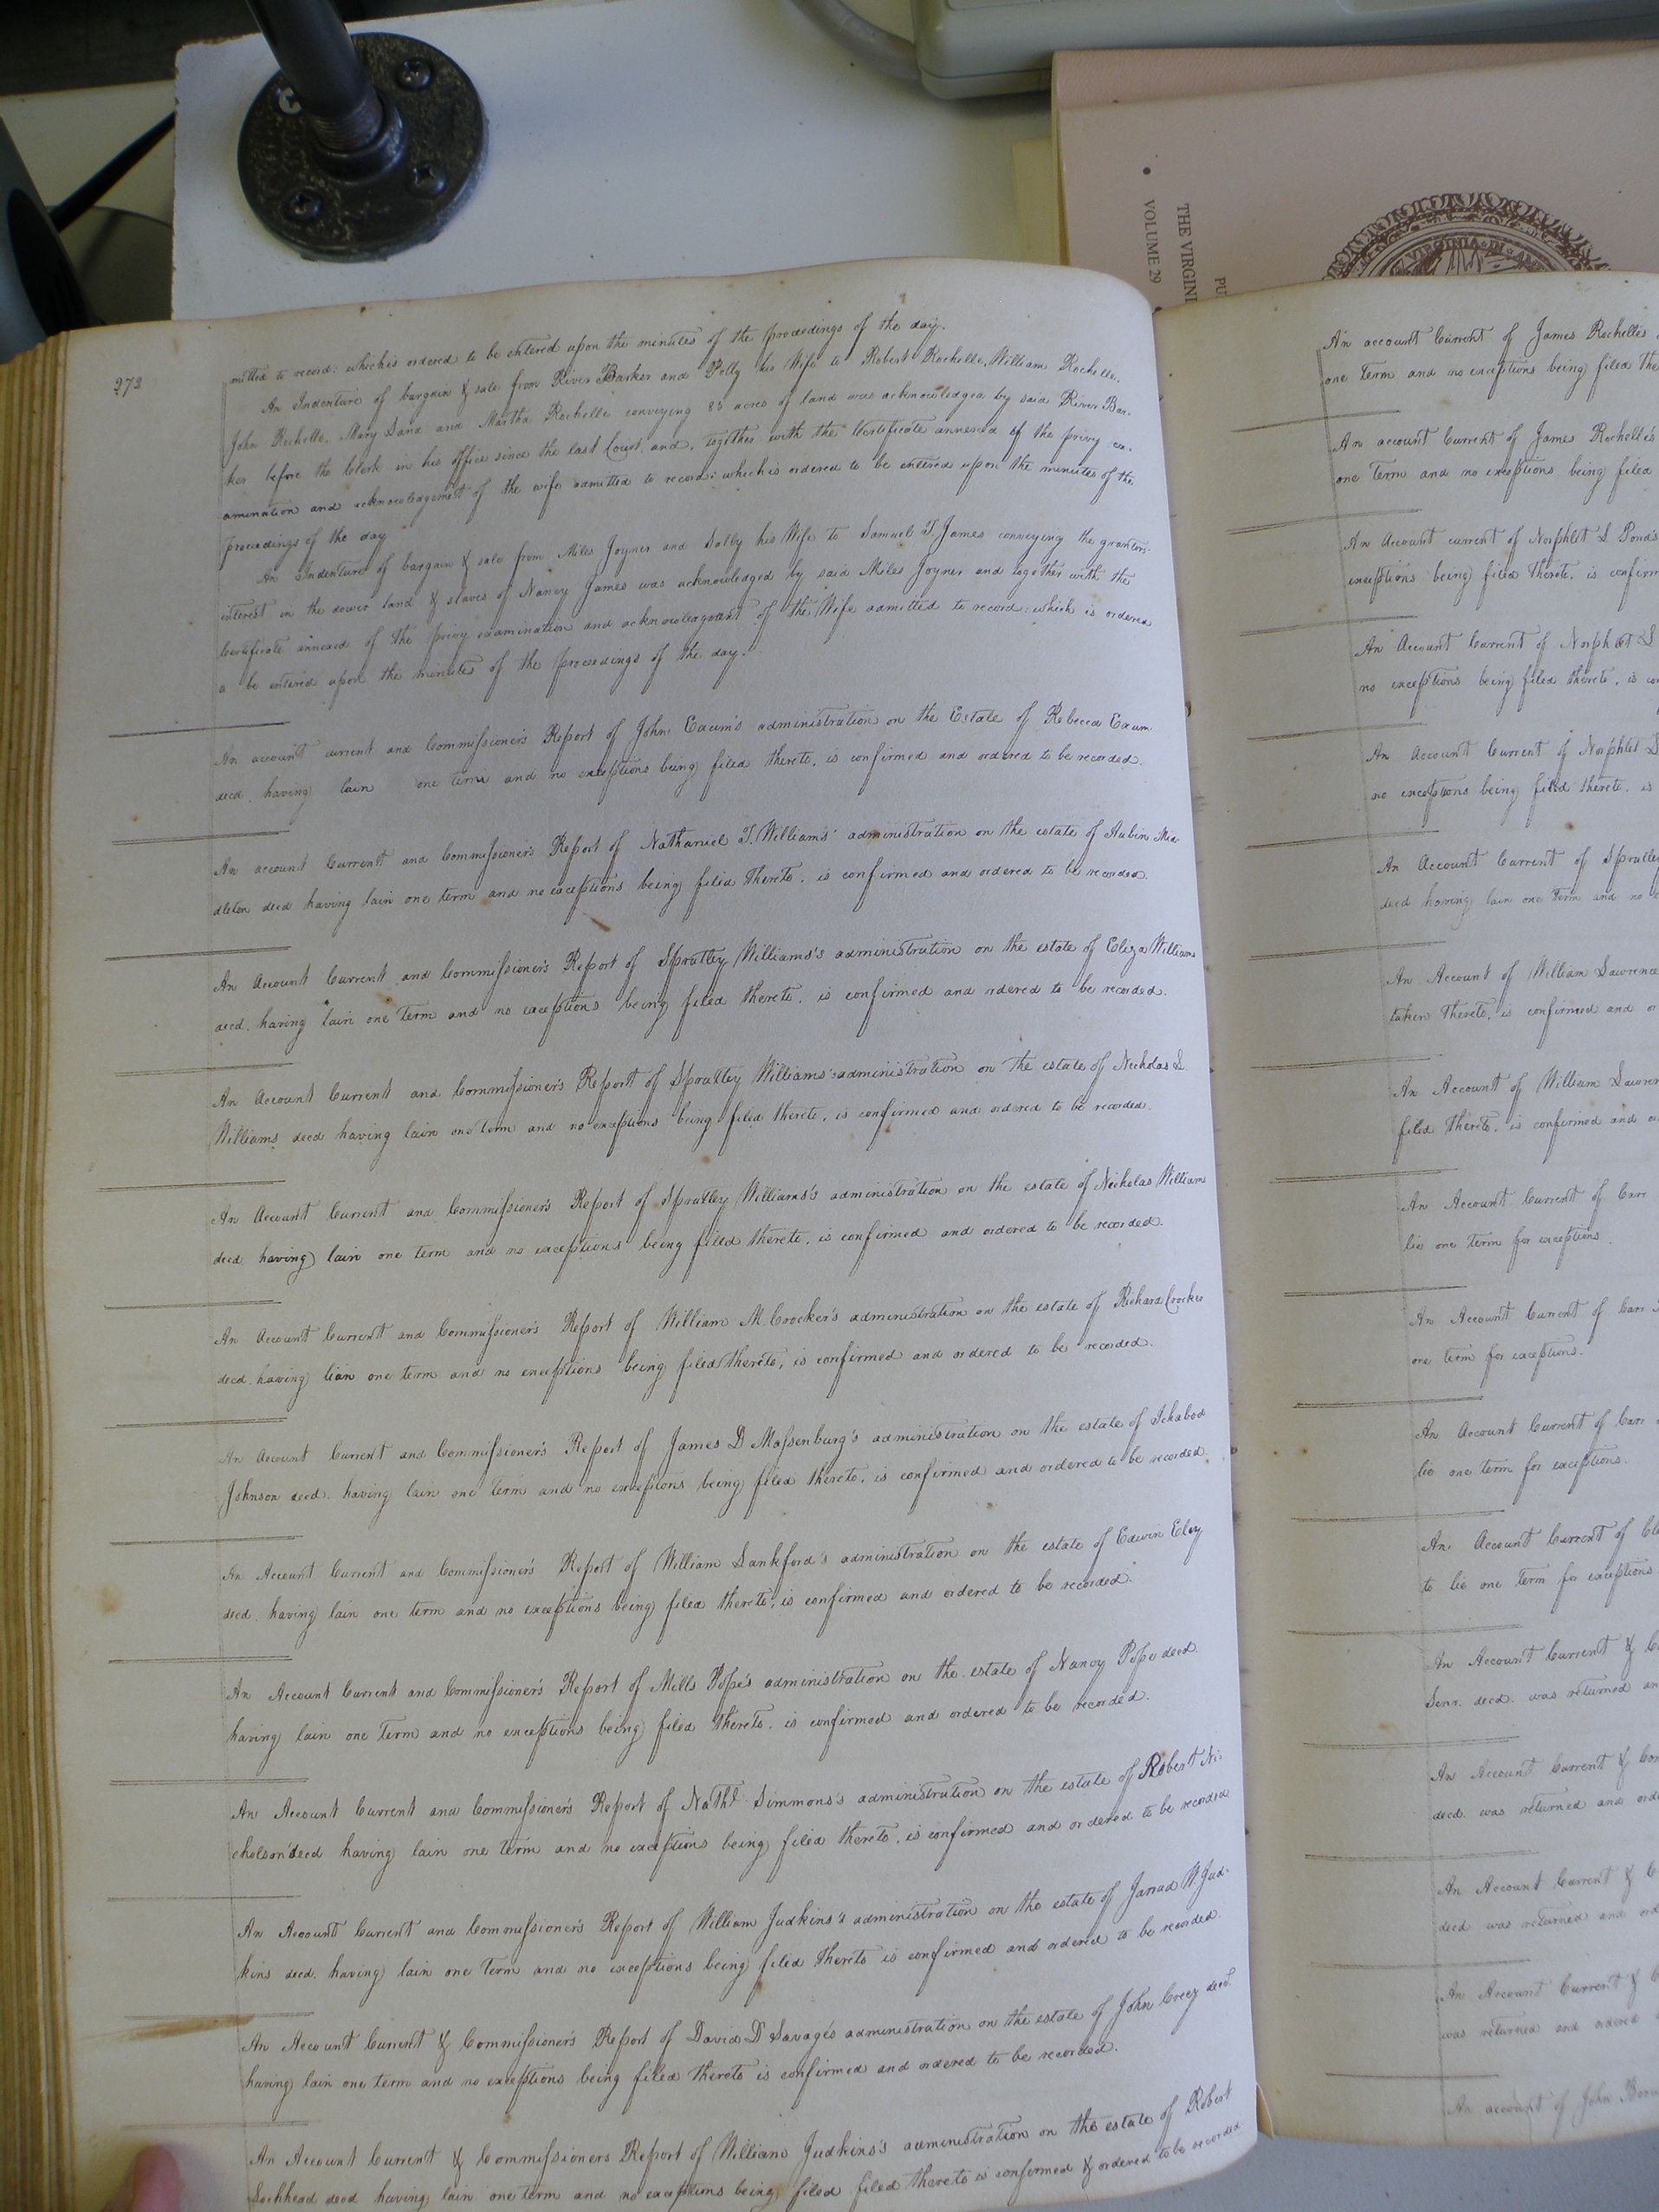 THE VIRGINI
VOLUME 29
PU
VIRGINIA DI
273
mitted to record: which is ordered to be entered upon the minutes of the proceedings of the day.
An Indenture of bargain & sale from River Barker and Polly his Wife to Robert Rochelle, William Rochelle,
John Rochelle, Mary Land and Martha Rochelle conveying 85 acres of land was acknowledged by said River Bar-
ker before the Clerk in his office since the last Court, and, together with the Certificate annexed of the privy ex-
amination and acknowledgement of the wife admitted to record: which is ordered to be entered upon the minutes of the
proceedings of the day
An Indenture of bargain & sale from Miles Joyner and Sally his Wife to Samuel T. James conveying the grantors
interest in the dower land & slaves of Nancy James was acknowledged by said Miles Joyner and together with the
Certificate annexed of the privy examination and acknowledgment of the Wife admitted to record: which is ordered
a be entered upon the minutes of the proceedings of the day.
An account current and Commissioner's Report of John Exum's administration on the Estate of Rebecca Exum
decd. having lain one term and no exceptions being filed thereto, is confirmed and ordered to be recorded.
An account Current and Commissioner's Report of Nathaniel T. William's administration on the estate of Aubin Mid-
dleton decd having lain one term and no exceptions being filed thereto, is confirmed and ordered to be recorded.
An Account Current and Commissioner's Report of Spratley Williams's administration on the estate of Eliza Williams
decd. having lain one term and no exceptions being filed thereto, is confirmed and ordered to be recorded.
An Account Current and Commissioner's Report of Spratley Williams' administration on the estate of Nicholas L.
Williams decd having lain one term and no exceptions being filed thereto, is confirmed and ordered to be recorded.
An Account Current and Commissioner's Report of Spratley Williams's administration on the estate of Nicholas Williams
decd having lain one term and no exceptions being filed thereto, is confirmed and ordered to be recorded.
An Account Current and Commissioner's Report of William M. Crocker's administration on the estate of Richard Crocker
decd. having lian one term and no exceptions being filed thereto, is confirmed and ordered to be recorded.
An Account Current and Commissioner's Report of James D Massenburg's administration on the estate of Ichabod
Johnson decd. having lain one term and no exceptions being filed thereto, is confirmed and ordered to be recorded.
An Account Current and Commissioner's Report of William Lankford's administration on the estate of Edwin Eley
decd. having lain one term and no exceptions being filed thereto, is confirmed and ordered to be recorded.
An Account Current and Commissioner's Report of Mills Pope's administration on the estate of Nancy Pope decd.
having lain one term and no exceptions being filed thereto, is confirmed and ordered to be recorded.
An Account Current and Commissioner's Report of Nathl. Simmons's administration on the estate of Robert Ni-
cholson decd having lain one term and no exceptions being filed thereto, is confirmed and ordered to be recorded
An Account Current and Commissioner's Report of William Judkins's administration on the estate of Jarrad W. Jud-
kins decd. having lain one term and no exceptions being filed thereto is confirmed and ordered to be recorded.
An Account Current & Commissioner's Report of David D Savage's administration on the estate of John Creez decd.
having lain one term and no exceptions being filed thereto is confirmed and ordered to be recorded.
An Account Current & Commissioners Report of William Judkins's administration on the estate of Robert
Lochhead decd having lain one term and no exceptions being filed filed thereto is confirmed & ordered to be recorded
An account Current of James Rochelle's
one term and no exceptions being filed the
An account Current of James Rochelle's
one term and no exceptions being filed
An Account current of Norphlet S Pond's
exceptions being filed thereto, is confirm
An Account Current of Norphlet S
no exceptions being filed thereto, is co
An Account Current of Norphlet S
no exceptions being filed thereto, is
An Account Current of Spratley
decd having lain one term and no
An Account of William Lawrence
taken thereto, is confirmed and o
An Account of William Lawren
filed thereto, is confirmed and o
An Account Current of Carr
lie one term for exceptions.
An Account Current of Carr
one term for exceptions.
An Account Current of Carr
lie one term for exceptions.
An Account Current of Cl
to lie one term for exceptions
An Account Current & C
Senr. decd. was returned an
An Account Current & Com
decd. was returned and orde
An Account Current & C
decd was returned and ord
An Account Current &
was returned and ordered
An account of John